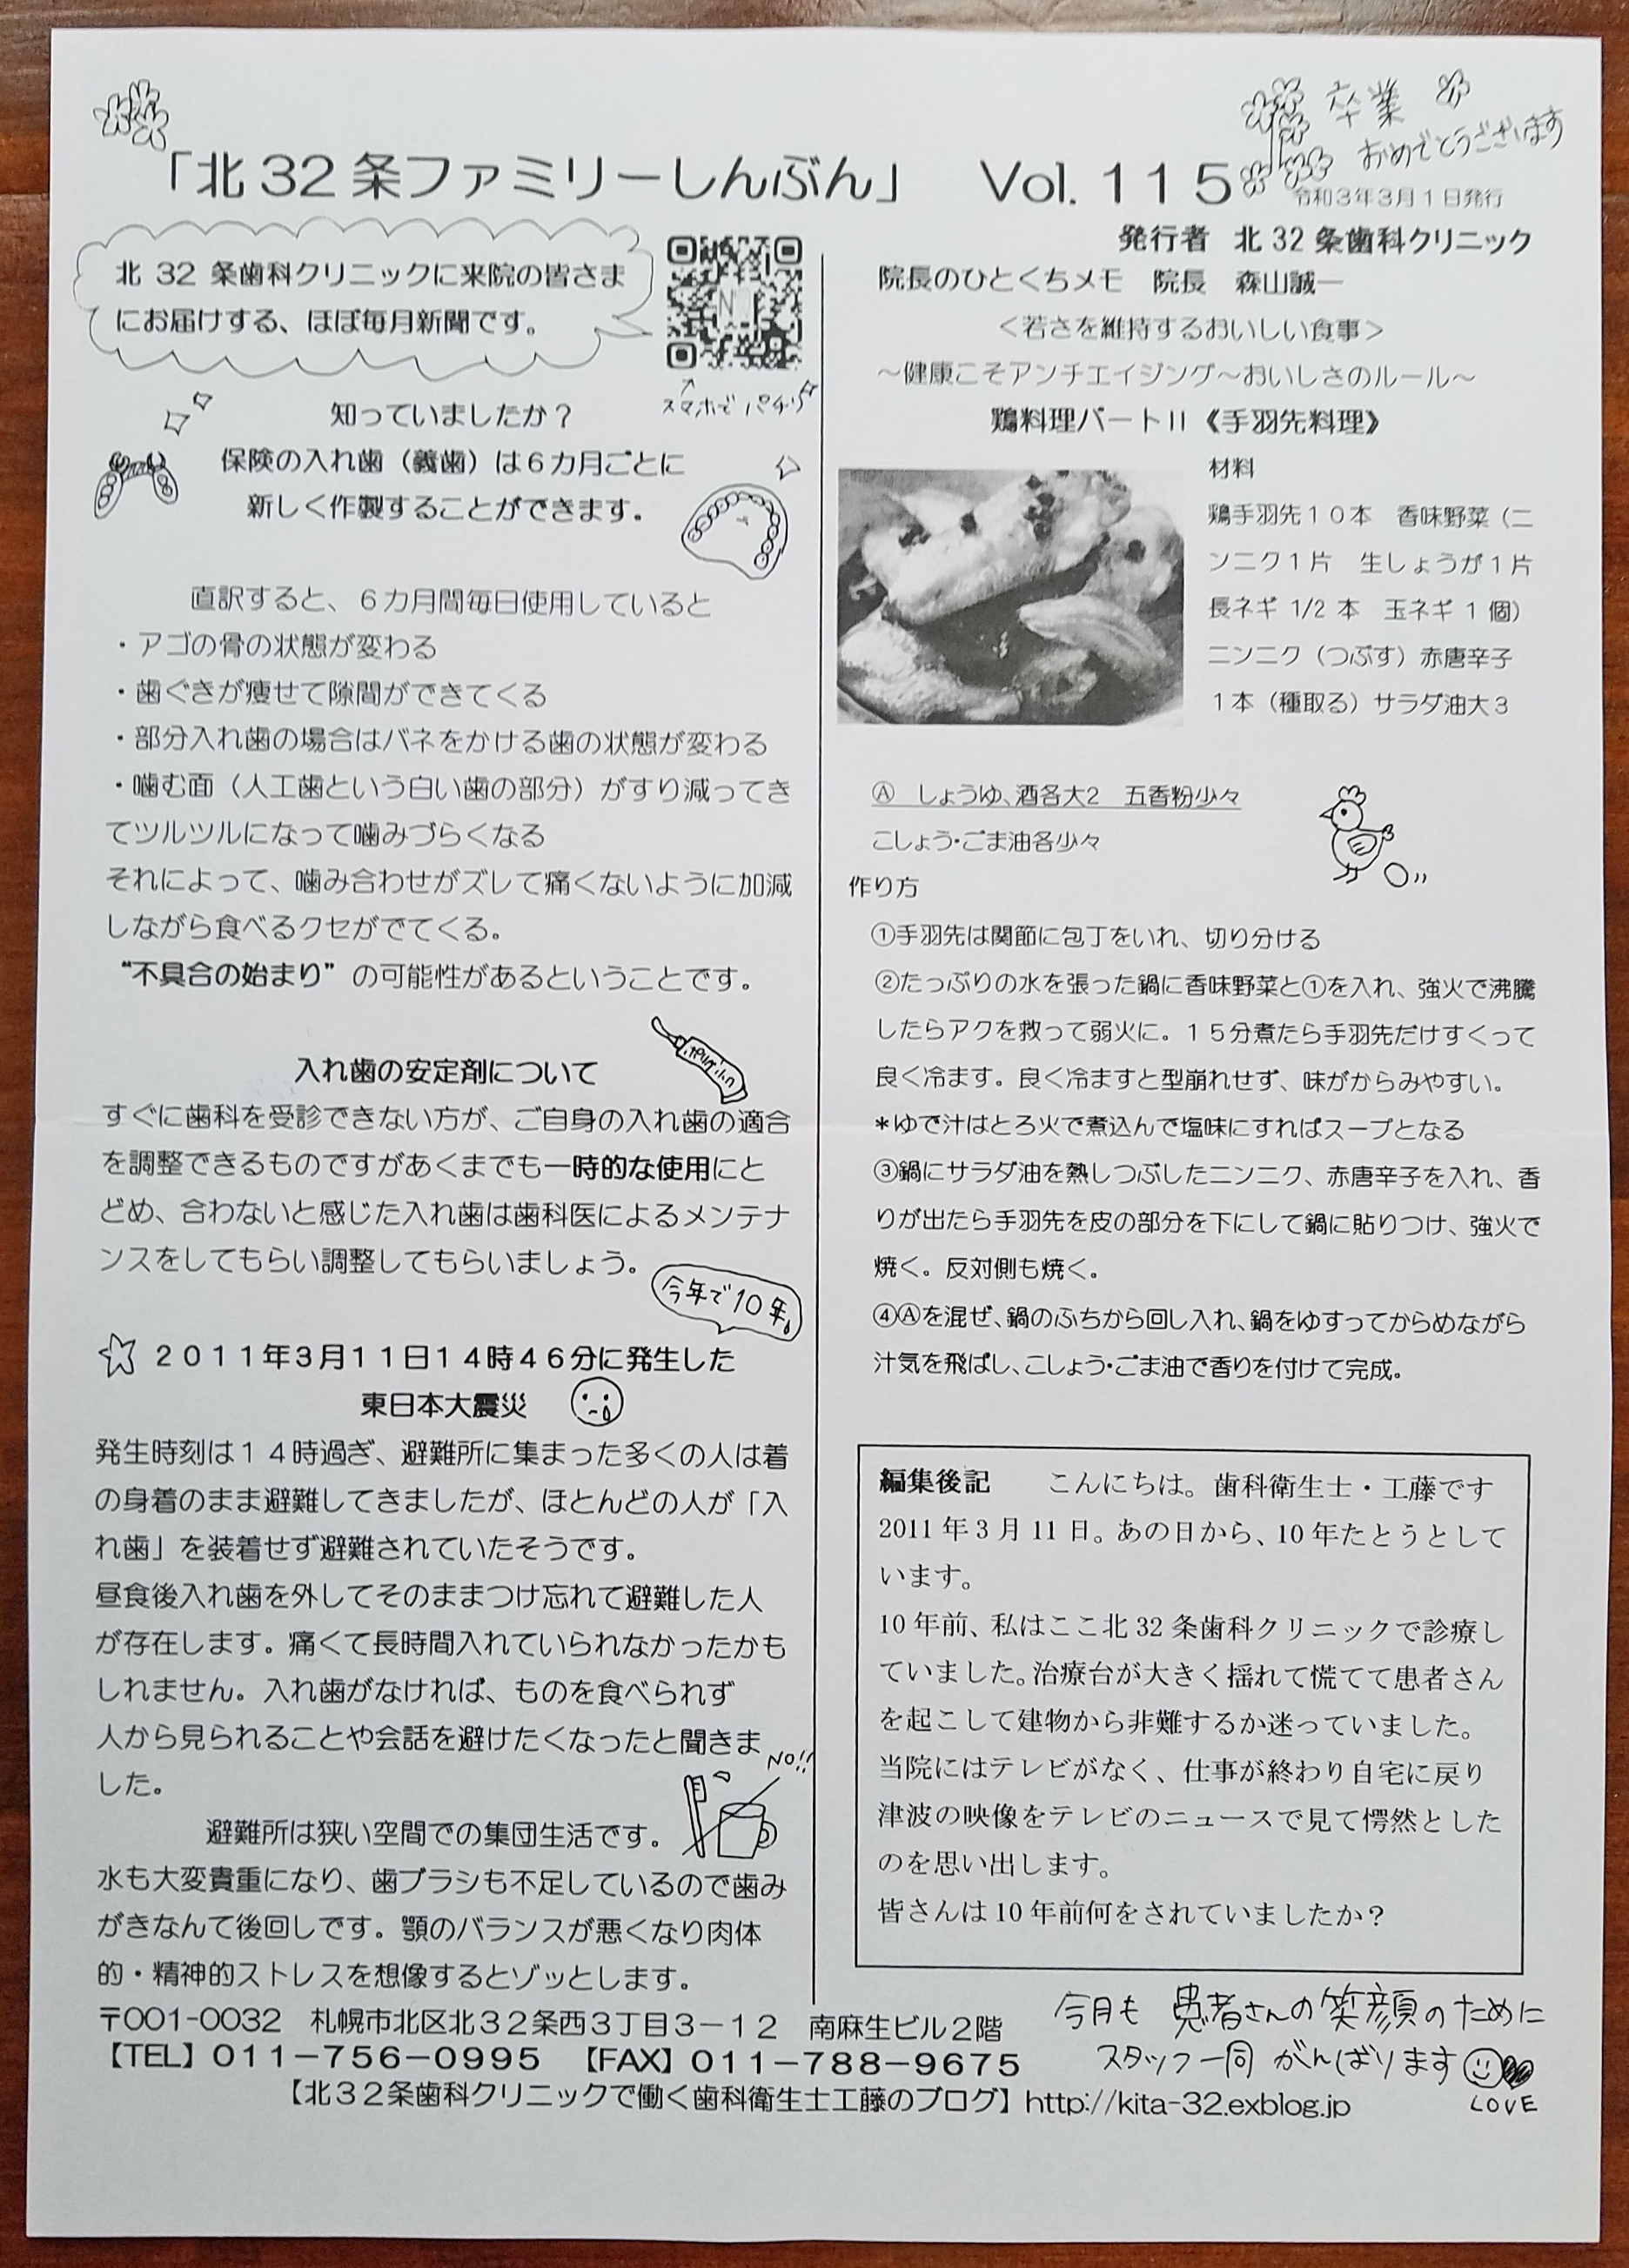 卒業
おめでとうございます
「北32条ファミリーしんぶん」 Vol.115
令和3年3月1日発行
発行者 北32条歯科クリニック
北 32 条歯科クリニックに来院の皆さま
にお届けする、ほぼ毎月新聞です。
スマホで パチリ
知っていましたか？
保険の入れ歯（義歯）は6カ月ごとに
新しく作製することができます。
直訳すると、6カ月間毎日使用していると
・アゴの骨の状態が変わる
・歯ぐきが痩せて隙間ができてくる
・部分入れ歯の場合はバネをかける歯の状態が変わる
・噛む面（人工歯という白い歯の部分）がすり減ってき
てツルツルになって噛みづらくなる
それによって、噛み合わせがズレて痛くないように加減
しながら食べるクセがでてくる。
“不具合の始まり”の可能性があるということです。
入れ歯の安定剤について
すぐに歯科を受診できない方が、ご自身の入れ歯の適合
を調整できるものですがあくまでも一時的な使用にと
どめ、合わないと感じた入れ歯は歯科医によるメンテナ
ンスをしてもらい調整してもらいましょう。
今年で10年。
２０１１年３月１１日１４時４６分に発生した
東日本大震災
発生時刻は１４時過ぎ、避難所に集まった多くの人は着
の身着のまま避難してきましたが、ほとんどの人が「入
れ歯」を装着せず避難されていたそうです。
昼食後入れ歯を外してそのままつけ忘れて避難した人
が存在します。痛くて長時間入れていられなかったかも
しれません。入れ歯がなければ、ものを食べられず
人から見られることや会話を避けたくなったと聞きま
した。
NO!!
避難所は狭い空間での集団生活です。
水も大変貴重になり、歯ブラシも不足しているので歯み
がきなんて後回しです。顎のバランスが悪くなり肉体
的・精神的ストレスを想像するとゾッとします。
院長のひとくちメモ 院長 森山誠一
＜若さを維持するおいしい食事＞
～健康こそアンチエイジング～おいしさのルール～
鶏料理パートⅡ《手羽先料理》
材料
鶏手羽先１０本 香味野菜（ニ
ンニク１片 生しょうが１片
長ネギ 1/2 本 玉ネギ 1 個）
ニンニク（つぶす）赤唐辛子
１本（種取る）サラダ油大３
Ⓐ しょうゆ、酒各大2 五香粉少々
こしょう・ごま油各少々
作り方
①手羽先は関節に包丁をいれ、切り分ける
②たっぷりの水を張った鍋に香味野菜と①を入れ、強火で沸騰
したらアクを救って弱火に。１５分煮たら手羽先だけすくって
良く冷ます。良く冷ますと型崩れせず、味がからみやすい。
*ゆで汁はとろ火で煮込んで塩味にすればスープとなる
③鍋にサラダ油を熱しつぶしたニンニク、赤唐辛子を入れ、香
りが出たら手羽先を皮の部分を下にして鍋に貼りつけ、強火で
焼く。反対側も焼く。
④Ⓐを混ぜ、鍋のふちから回し入れ、鍋をゆすってからめながら
汁気を飛ばし、こしょう・ごま油で香りを付けて完成。
編集後記 こんにちは。歯科衛生士・工藤です
2011 年 3 月 11 日。あの日から、10 年たとうとして
います。
10 年前、私はここ北 32 条歯科クリニックで診療し
ていました。治療台が大きく揺れて慌てて患者さん
を起こして建物から非難するか迷っていました。
当院にはテレビがなく、仕事が終わり自宅に戻り
津波の映像をテレビのニュースで見て愕然とした
のを思い出します。
皆さんは 10 年前何をされていましたか？
今月も 患者さんの笑顔のために
スタッフ一同 がんばります
LOVE
〒001-0032 札幌市北区北３２条西３丁目３－１２ 南麻生ビル２階
【TEL】０１１－７５６－０９９５ 【FAX】０１１－７８８－９６７５
【北３２条歯科クリニックで働く歯科衛生士工藤のブログ】http://kita-32.exblog.jp